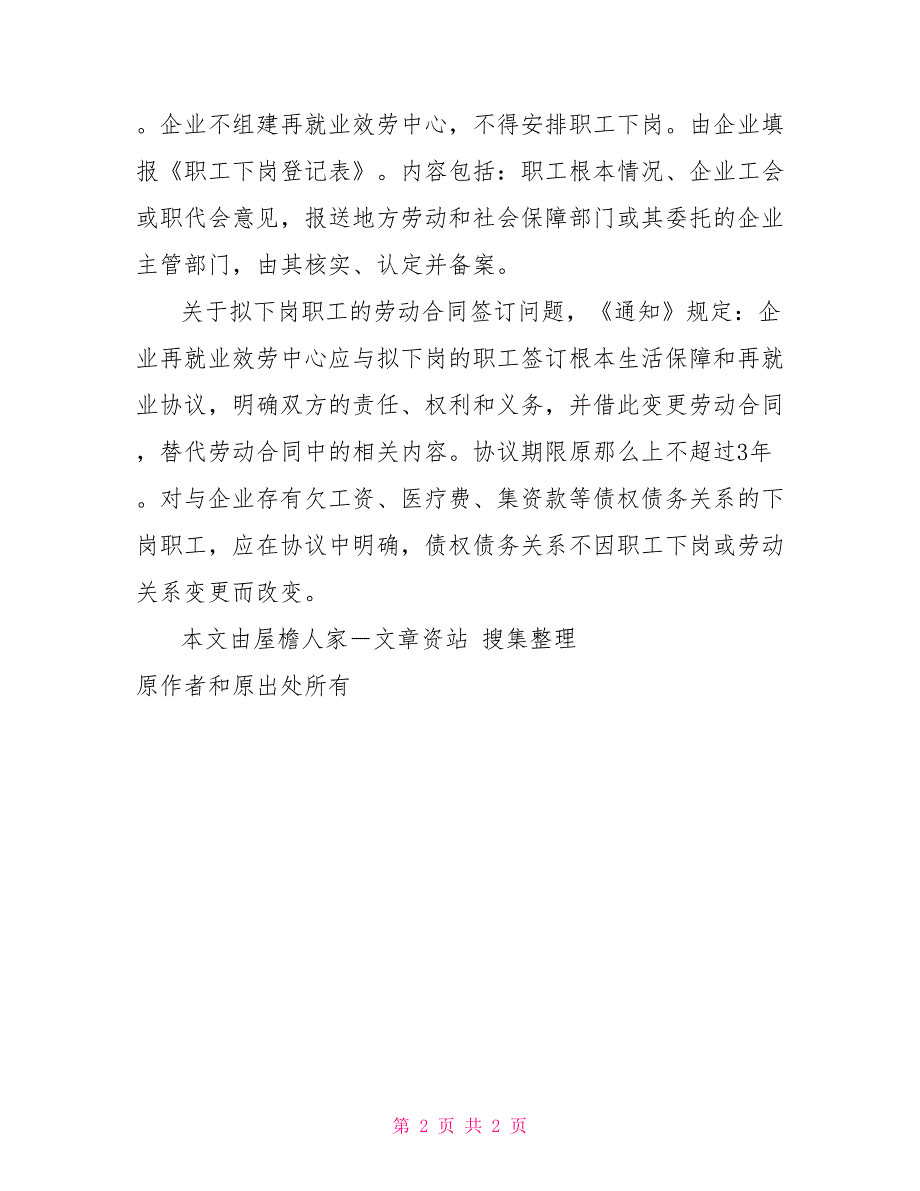 。企业不组建再就业效劳中心，不得安排职工下岗。由企业填
报《职工下岗登记表》。内容包括：职工根本情况、企业工会
或职代会意见，报送地方劳动和社会保障部门或其委托的企业
主管部门，由其核实、认定并备案。
关于拟下岗职工的劳动合同签订问题，《通知》规定：企
业再就业效劳中心应与拟下岗的职工签订根本生活保障和再就
业协议，明确双方的责任、权利和义务，并借此变更劳动合同
，替代劳动合同中的相关内容。协议期限原那么上不超过3年
。对与企业存有欠工资、医疗费、集资款等债权债务关系的下
岗职工，应在协议中明确，债权债务关系不因职工下岗或劳动
关系变更而改变。
本文由屋檐人家－文章资站 搜集整理
原作者和原出处所有
第 2 页 共 2 页